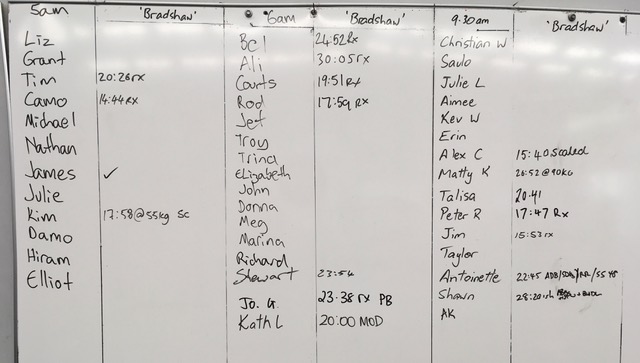 5am 'Bradshaw' 6am 'Bradshaw' 9:30am 'Bradshaw'
Liz Bel 24:52Rx Christian W
Grant Ali 30:05rx Saulo
Tim 20:26rx Courts 19:51Rx Julie L
Camo 14:44RX Rod 17:59Rx Aimee
Michael Jet Kev W
Nathan Troy Erin
James ✓ Trina Alex C 15:40 Scaled
Julie Elizabeth Matty K 26:52@40KG
Kim 17:58@55kg Sc John Talisa 20:41
Damo Donna Peter R 17:47 Rx
Hiram Meg Jim 15:53rx
Elliot Marina Taylor
Richard Antoinette 22:45
Stewart 23:54 Shawn 28:20
Jo. G. 23.38 rx PB AK
Kath L 20:00 MOD